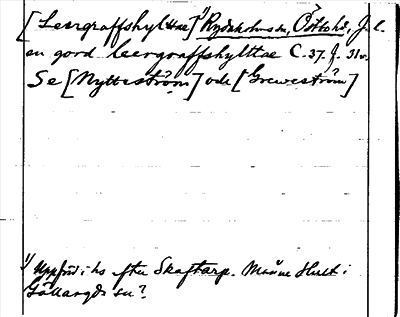 [Leergraffshyltae] 1) Rydaholms sn, Östbo hd, J. l.
en gord leergraffshylttae C. 37. J. 31v.
Se [Nytteström] och [Greweström]
1) Uppförd i hs efter Skaftarp. Månne Hult i
Gällaryds sn?